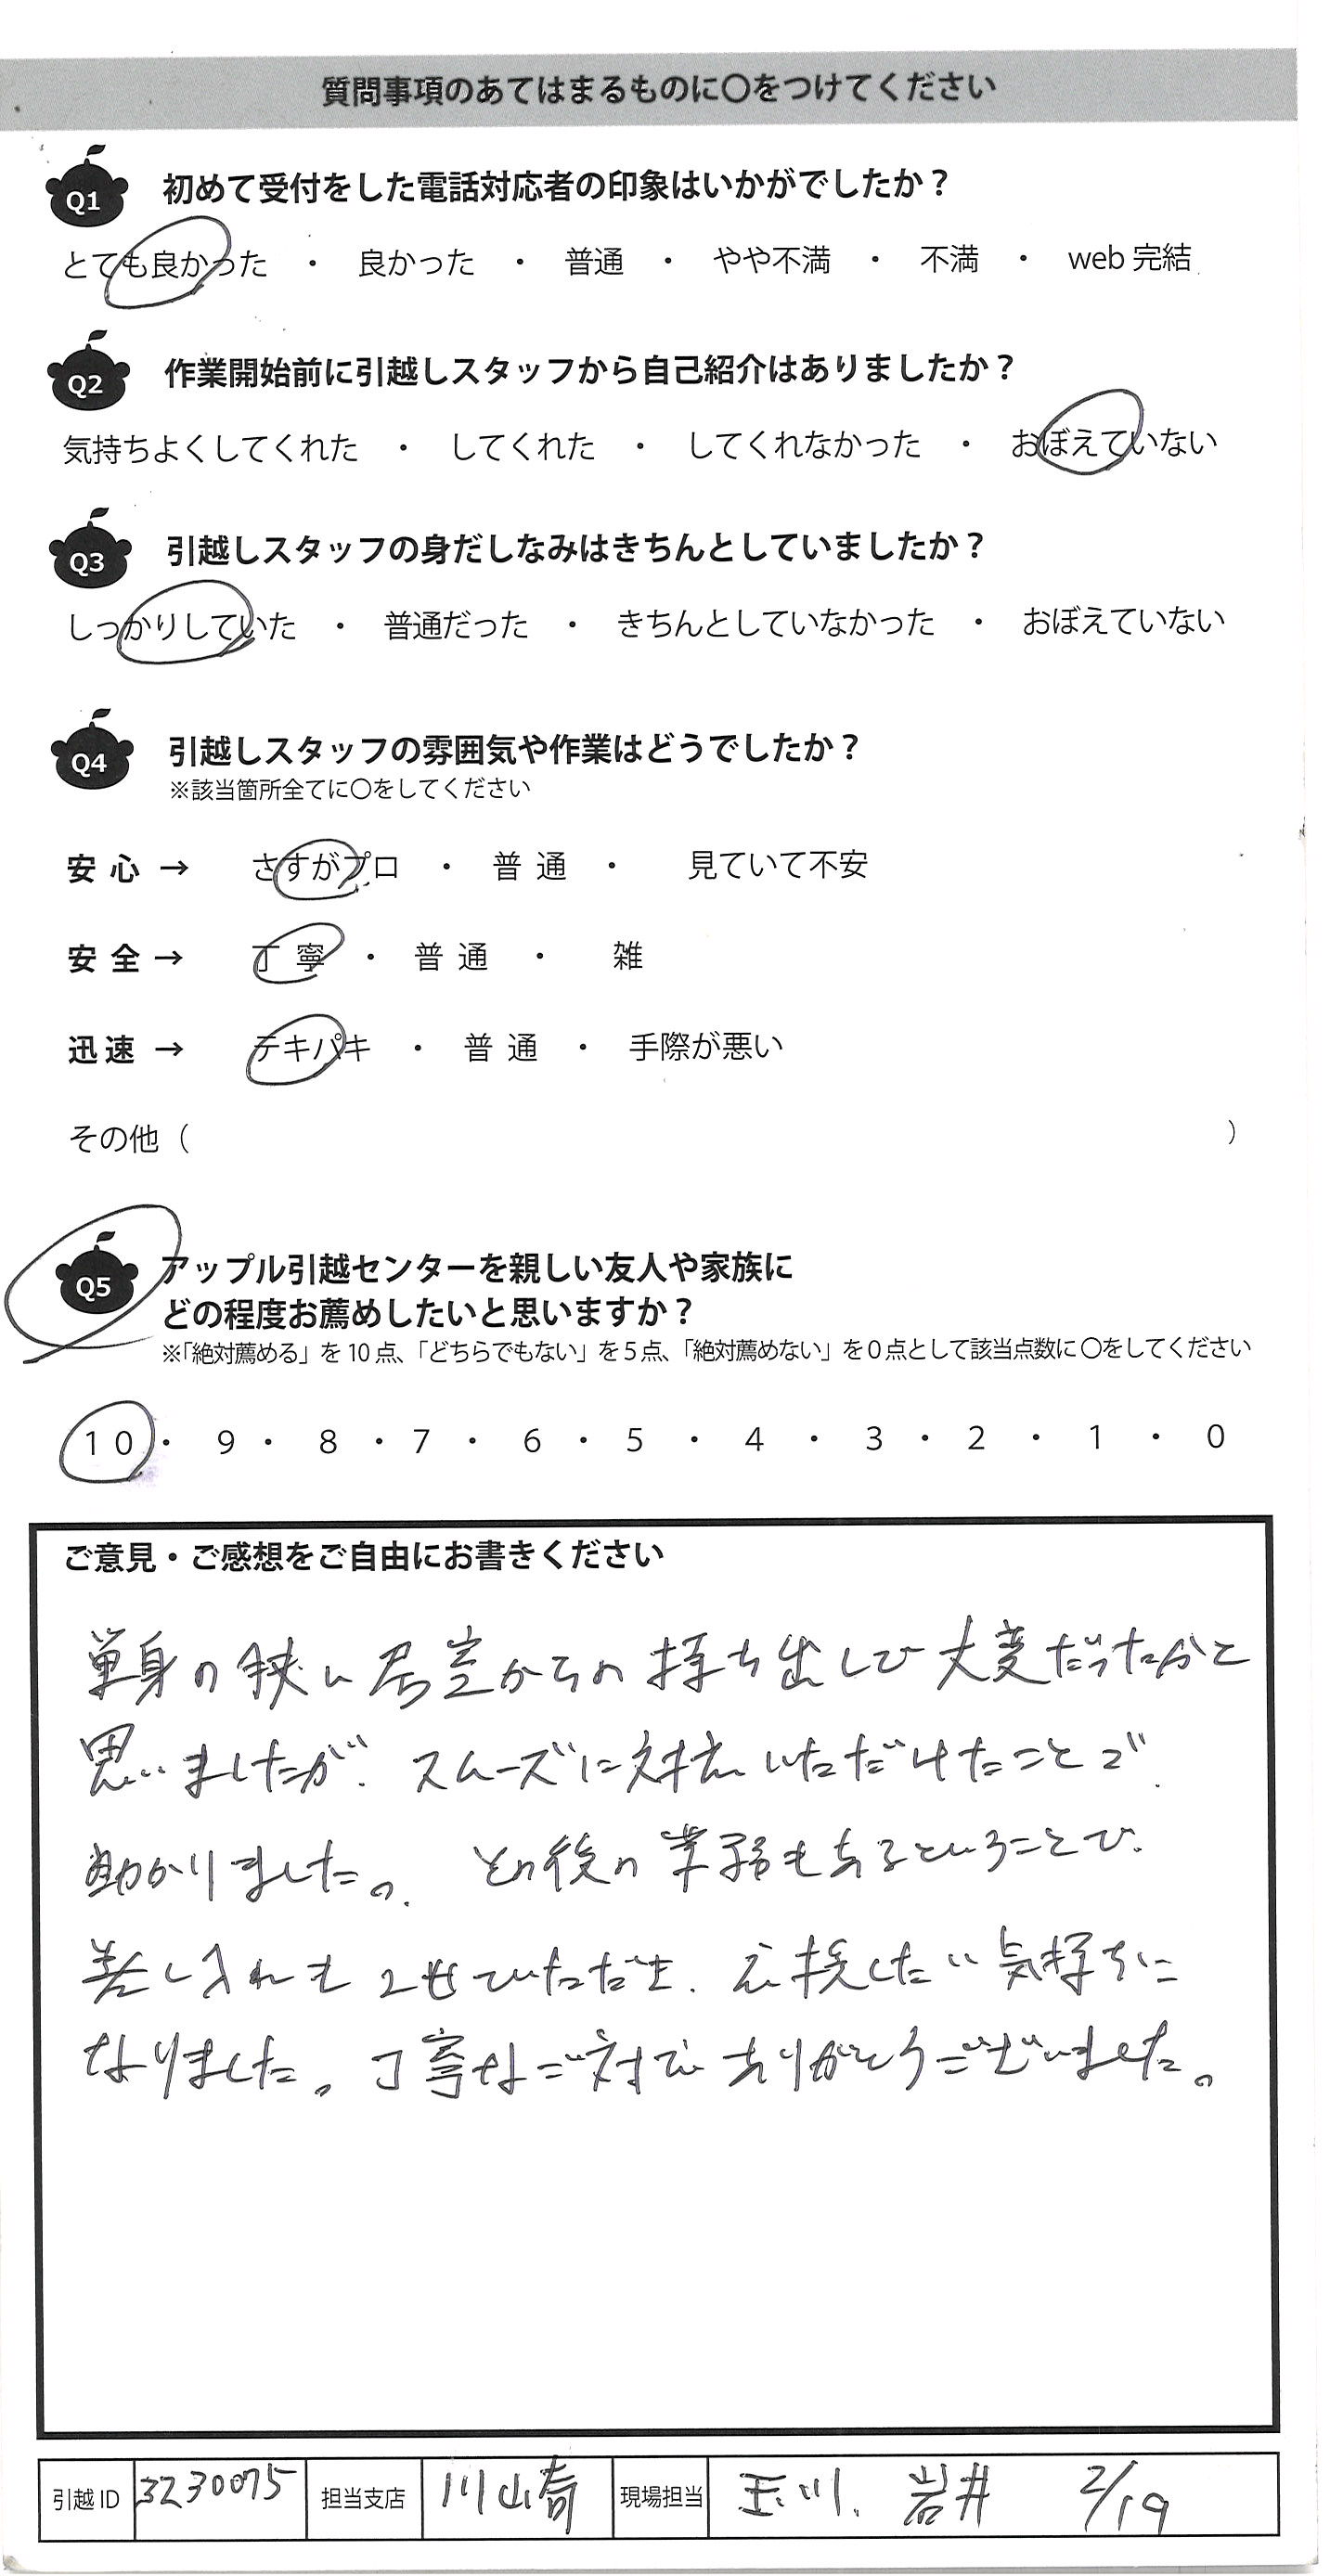 質問事項のあてはまるものに〇をつけてください
Q1 初めて受付をした電話対応者の印象はいかがでしたか？
とても良かった ・ 良かった ・ 普通 ・ やや不満 ・ 不満 ・ web 完結
Q2 作業開始前に引越しスタッフから自己紹介はありましたか？
気持ちよくしてくれた ・ してくれた ・ してくれなかった ・ おぼえていない
Q3 引越しスタッフの身だしなみはきちんとしていましたか？
しっかりしていた ・ 普通だった ・ きちんとしていなかった ・ おぼえていない
Q4 引越しスタッフの雰囲気や作業はどうでしたか？
※該当箇所全てに〇をしてください
安心 → さすがプロ ・ 普通 ・ 見ていて不安
安全 → 丁寧 ・ 普通 ・ 雑
迅速 → テキパキ ・ 普通 ・ 手際が悪い
その他（ ）
Q5 アップル引越センターを親しい友人や家族に
どの程度お薦めしたいと思いますか？
※「絶対薦める」を10点、「どちらでもない」を5点、「絶対薦めない」を0点として該当点数に〇をしてください
10 ・ 9 ・ 8 ・ 7 ・ 6 ・ 5 ・ 4 ・ 3 ・ 2 ・ 1 ・ 0
ご意見・ご感想をご自由にお書きください
単身の狭い居室からの持ち出しで大変だったかと
思いましたが、スムーズに対応いただけたことで、
助かりました。その後の業務もあるということで、
差し入れもさせていただき、応援したい気持ちに
なりました。丁寧なご対応ありがとうございました。
引越ID 3230075 担当支店 川崎 現場担当 玉川、岩井 2/19